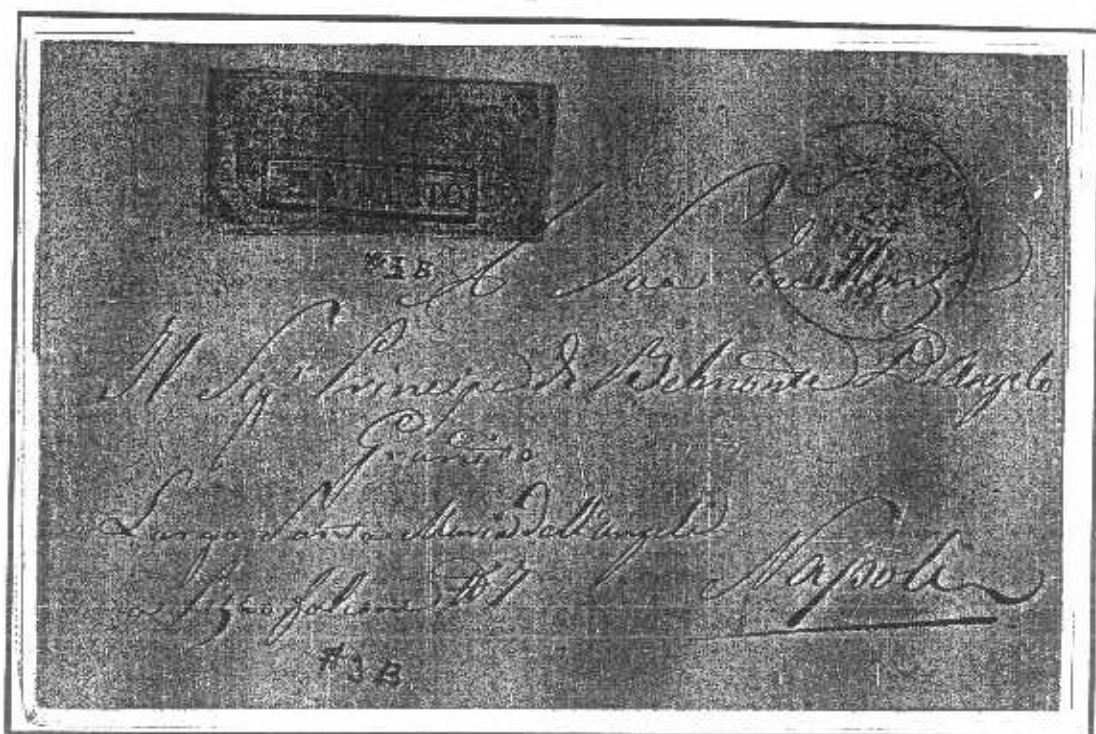 ANNULLATO
#3 B
A Sua Eccellenza
Il Sigr Principe di Belmonte D'Angelo
Granito
Largo Santa Maria dell'Angeli
a Pizzofalcone 7
Napoli
#3 B